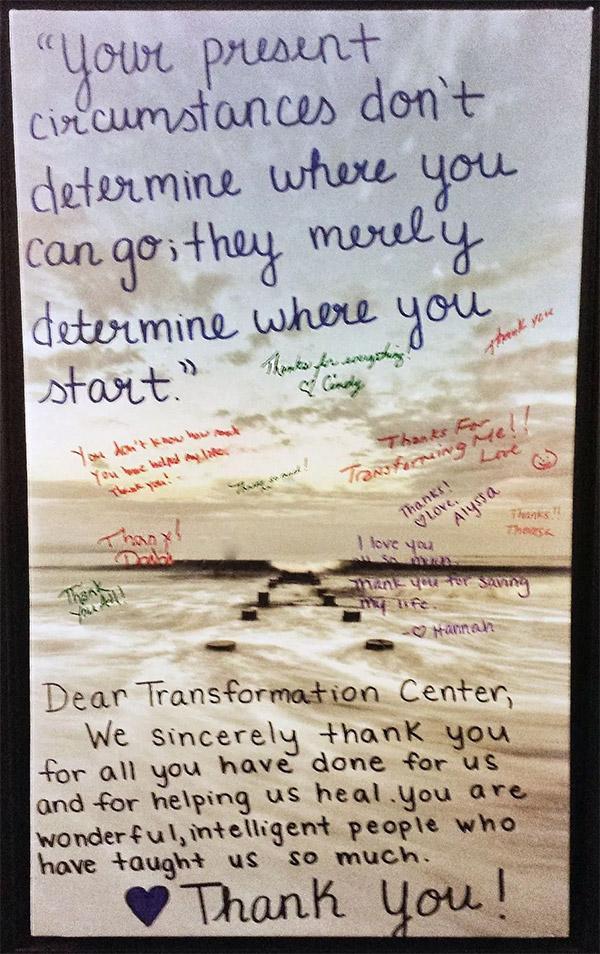 “Your present
circumstances don't
determine where you
can go; they merely
determine where you
start.”
thank you
Thanks for everything!
♡ Cindy
You don't know how much
You have helped my life.
Thank you!
Thanks For
Transforming Me!!
Love
Thank so much!
Thanks!
♡ Love,
Alyssa
Thanks!!
Theresa
Thanx!
I love you
so much.
Thank you for saving
my life.
-♡ Hannah
Thank
you all!
Dear Transformation Center,
We sincerely thank you
for all you have done for us
and for helping us heal. you are
wonderful, intelligent people who
have taught us so much.
♥ Thank You!